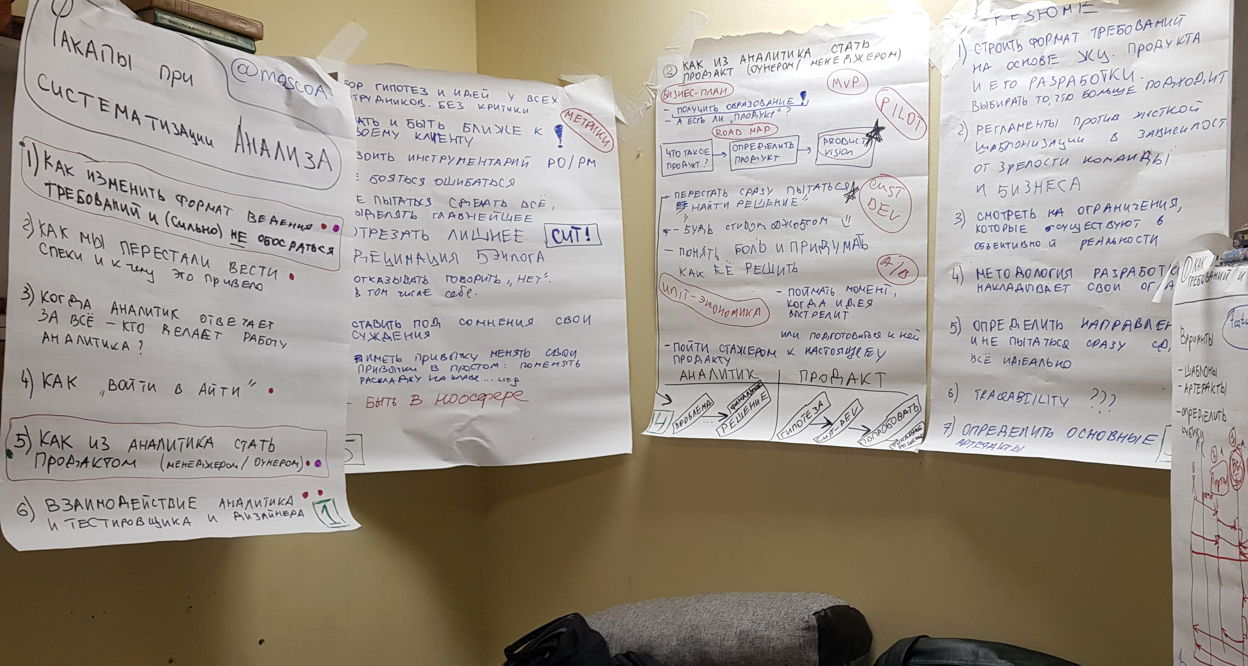 Факапы при
систематизации Анализа
@mqscoA
1) Как изменить формат ведения
требований и (сильно) не обосраться
2) Как мы перестали вести
спеки и к чему это привело
3) Когда аналитик отвечает
за всё – кто делает работу
аналитика?
4) Как „войти в айти"
5) Как из аналитика стать
продактом (менеджером/оунером)
6) Взаимодействие аналитика
и тестировщика и дизайнера
1
ор гипотез и идей у всех
трудников. Без критики
ать и быть ближе к
воему клиенту
Метрики
воить инструментарий PO/PM
бояться ошибаться
е пытаться сделать всё,
ыделять главнейшее
отрезать лишнее
CUT!
отказывать говорить „нет".
в том числе себе.
ставить под сомнения свои
суждения
иметь привычку менять свои
привычки в простом: поменять
раскладку на клаве... итд
Быть в ноосфере
5
2 Как из аналитика стать
продакт (оунером/менеджером)
Бизнес-план
MVP
- Получить образование!
- А есть ли „продукт"?
PILOT
ROAD MAP
Что такое
продукт?
Определить
продукт
Product
vision
- Перестать сразу пытаться
„найти решение"
Cust
DEV
- Будь стивом джобсом
- Понять боль и придумать
как её решить
A/B
Unit-экономика
- Поймать момент,
когда идея
выстрелит
или подготовиться к ней
- Пойти стажером к настоящему
продакту
Аналитик
Продакт
4
Проблема
финальное
Решение
Гипотеза
Cust-DEV
Попробовать
Резюме
1) Строить формат требований
на основе ЖЦ. продукта
и его разработки.
Выбирать то, что больше подходит
2) Регламенты против жесткой
шаблонизации в зависимост
от зрелости команды
и бизнеса
3) Смотреть на ограничения,
которые существуют в
объективной реальности
4) Методология разработ
накладывает свои огр
5) Определить направлен
и не пытаться сразу сд
всё идеально
6) Traceability ???
7) Определить основные
артефакты
Как
требований и
Варианты
- шаблоны
- артефакты
- определить